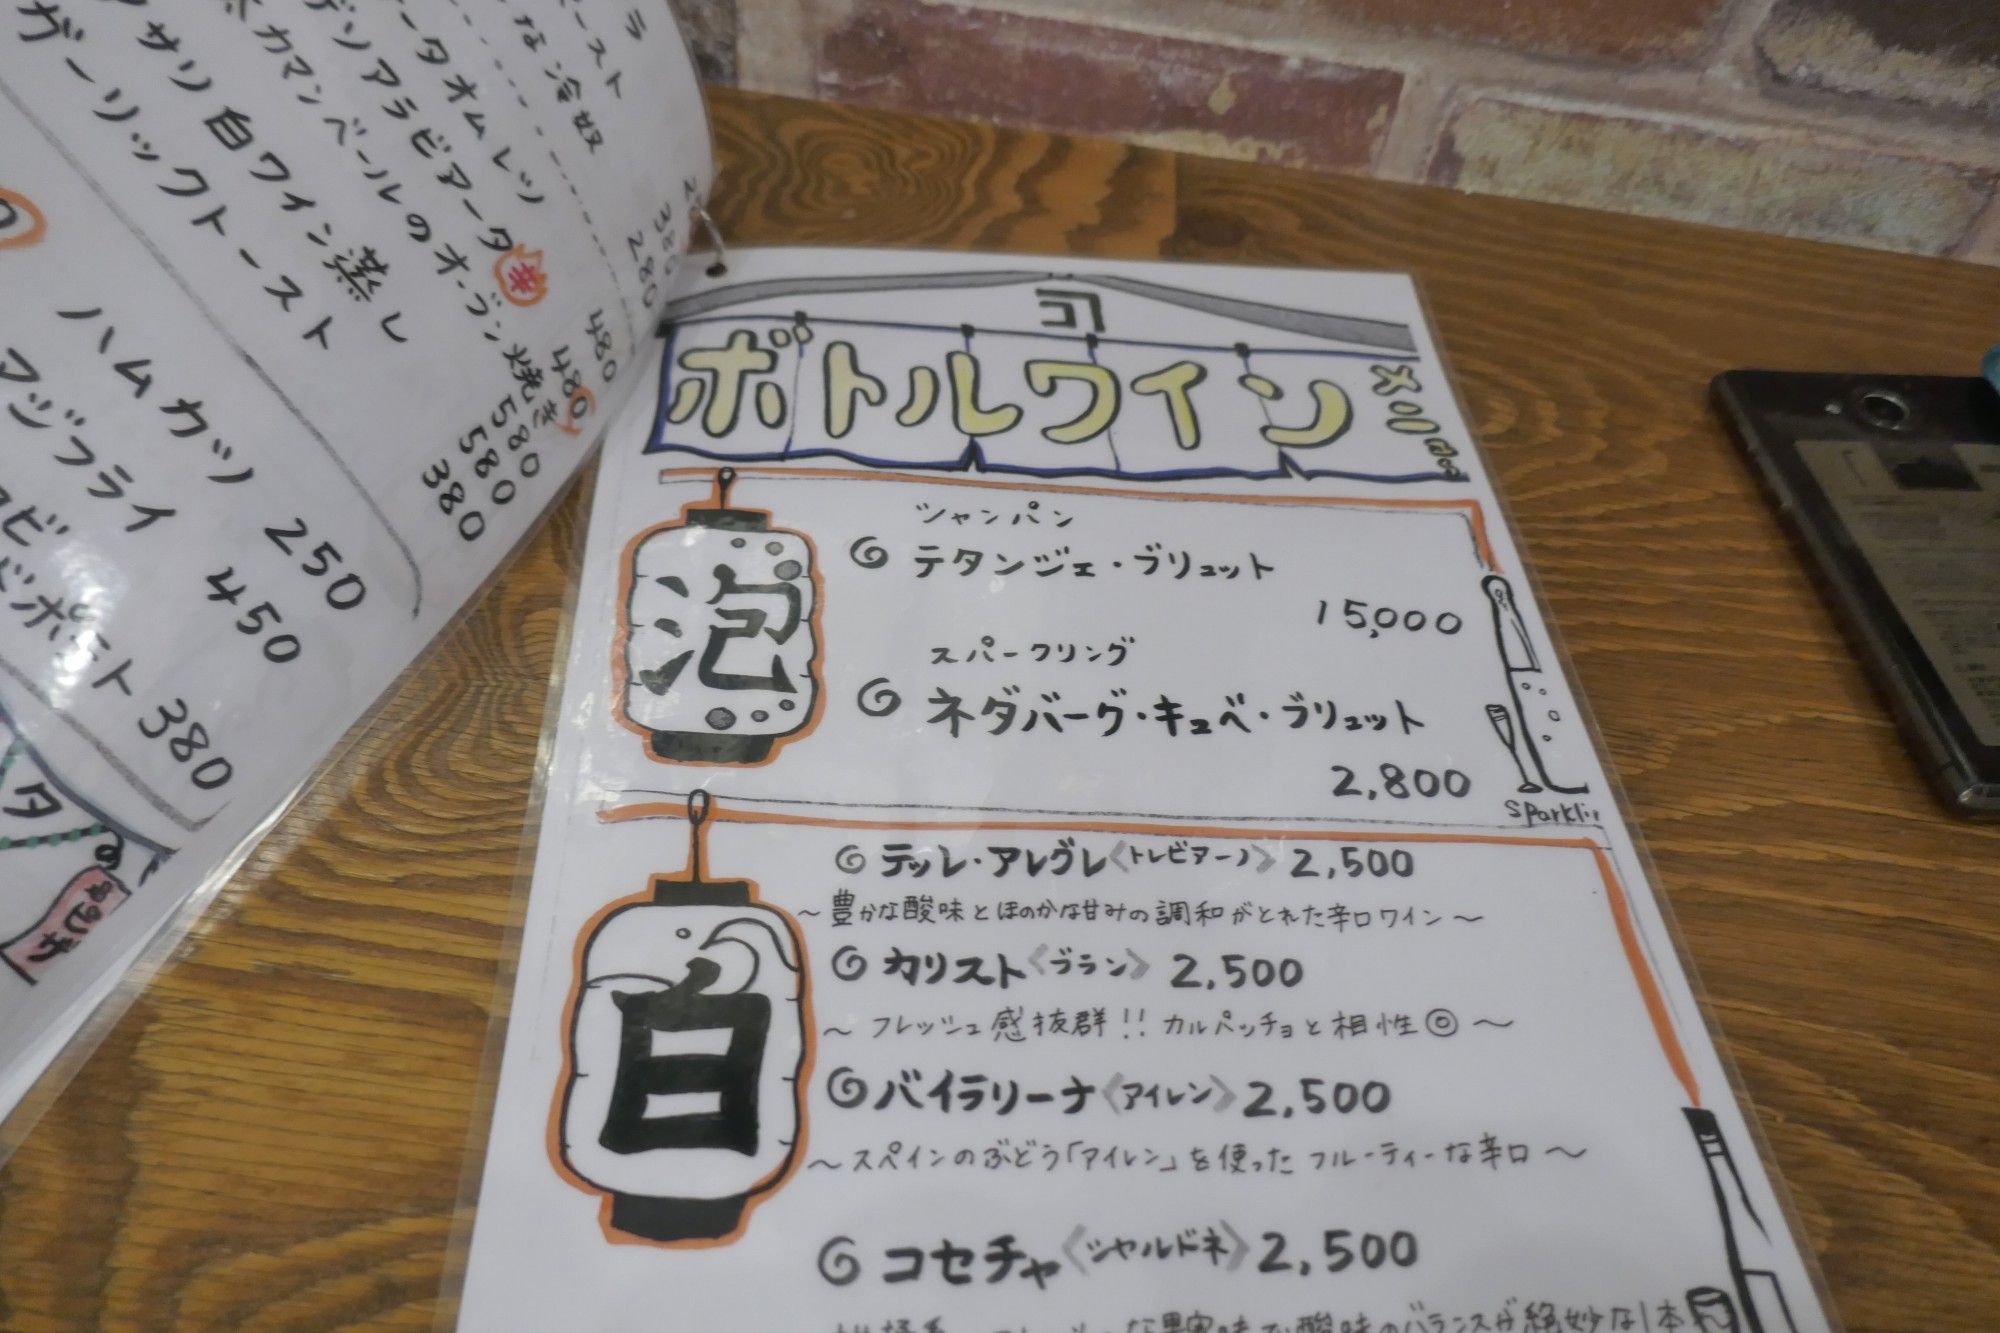 な冷奴
ータオムレツ
アラビアータ 辛
カマンベールのオーブン焼き
サリ白ワイン蒸し
ガーリックトースト
380
280
480
480
580
580
380
ハムカツ 250
アジフライ 450
ポテト 380
タ
ピザ
ボトルワイン
シャンパン
テタンジェ・ブリュット
15,000
スパークリング
ネダバーグ・キュベ・ブリュット
2,800
泡
テッレ・アレグレ《トレビアーノ》 2,500
～豊かな酸味とほのかな甘みの調和がとれた辛口ワイン～
カリスト《ブラン》 2,500
～フレッシュ感抜群!! カルパッチョと相性◎～
バイラリーナ《アイレン》 2,500
～スペインのぶどう「アイレン」を使ったフルーティーな辛口～
白
コセチャ《シャルドネ》 2,500
な果実味と酸味のバランスが絶妙な1本